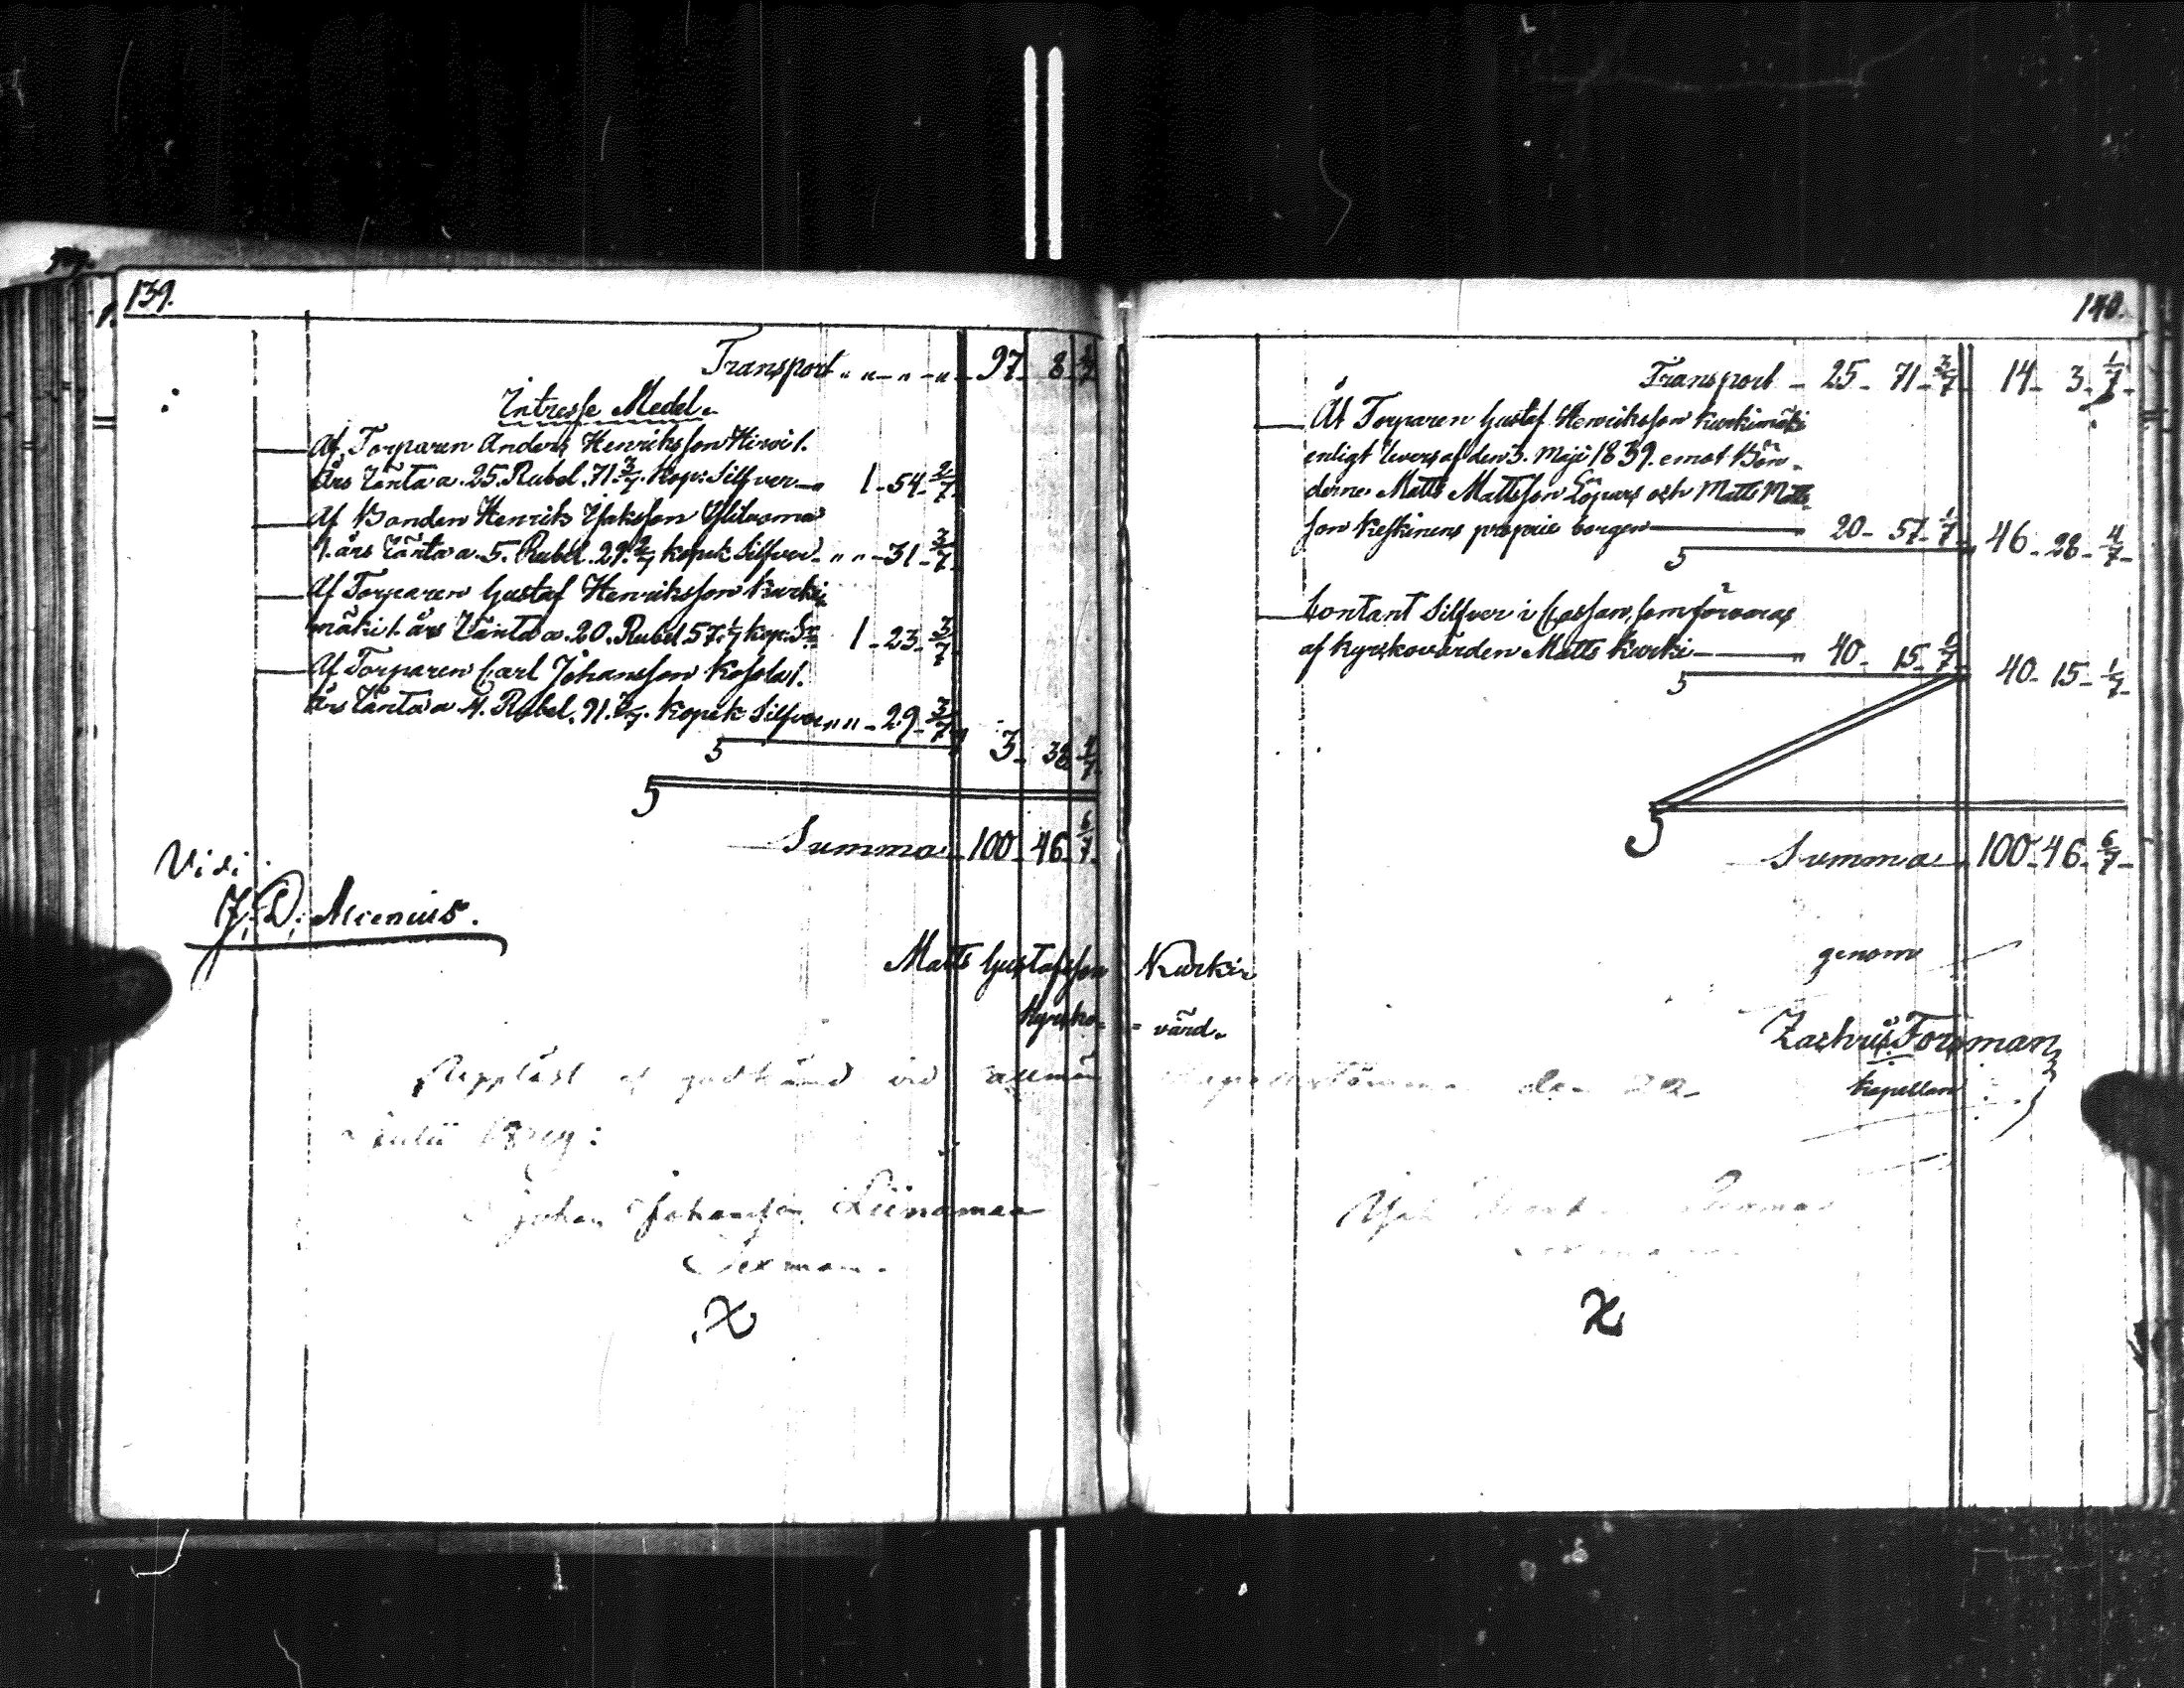 139.
Transport „ „ „ „ 97 8 2/7
Intresse Medel.
Af Torparen Anders Henriksson Hirvi 1.
års Ränta a. 25. Rubel. 71 3/7. Kop: Silfver 1 - 54 - 2/7
Af Bonden Henrik Isaksson Yliluoma
1. års Ränta a. 5. Rubel. 29 2/7 kopek Silfver „ „ 31 - 3/7
Af Torparen Gustaf Henriksson Kurki
mäki 1. års Ränta a. 20. Rubel 57. 1/7 kop: Sr 1 - 23 - 3/7
Af Torparen Carl Johansson Kosola 1.
års Ränta a 4. Rubel. 91. 3/7. Kopek Silfver „ „ 29 - 3/7
3 38 4/7
Summa 100 46 6/7
Vidi
J. D. Alcenius.
Matts Gustafsson Kurki
Kyrko- = värd.
Uppläst och godkänd vid allmän den 22
Julii
Johan Johansson Liinamaa
Sexman.
X
140.
Transport 25 - 71 - 3/7 14 - 3 - 1/7
Åt Torparen Gustaf Henriksson Kurkimäki
enligt Revers af den 3. Maji 1839. emot Bön-
derne Matts Mattsson Lopars och Matts Matts-
son Keskinens proprie borgen 20 - 57 - 1/7 46 - 28 - 4/7
Contant Silfver i Cassan, som förvaras
af Kyrkovärden Matts Kurki 40 - 15 - 1/7 40 - 15 - 1/7
Summa 100 - 46 - 6/7
genom
Zachris Forsman
Kapellan
X